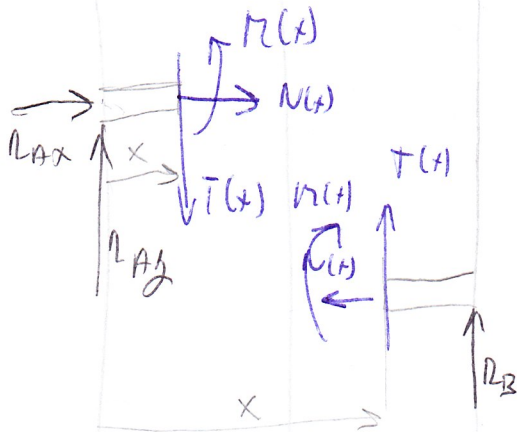 M(x)
N(x)
RAx
x
T(x)
T(x)
M(x)
RAy
N(x)
RB
x